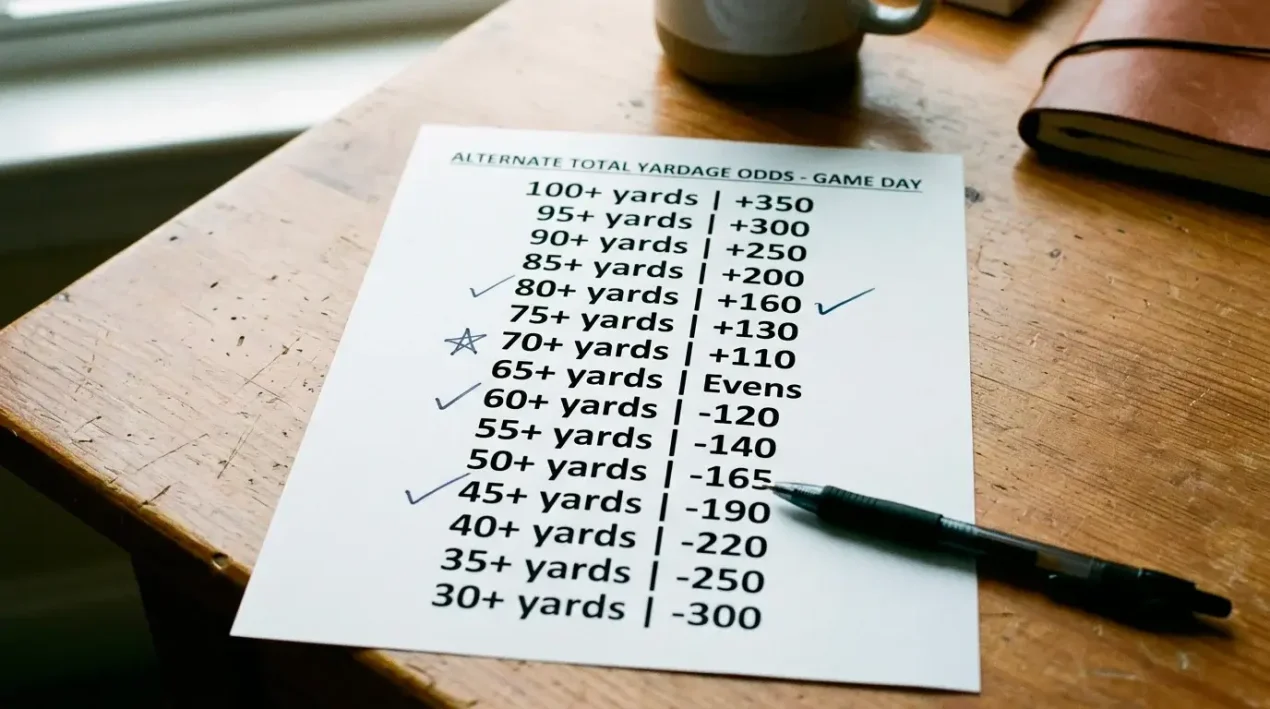 ALTERNATE TOTAL YARDAGE ODDS - GAME DAY
100+ yards | +350
95+ yards | +300
90+ yards | +250
85+ yards | +200
80+ yards | +160
75+ yards | +130
70+ yards | +110
65+ yards | Evens
60+ yards | -120
55+ yards | -140
50+ yards | -165
45+ yards | -190
40+ yards | -220
35+ yards | -250
30+ yards | -300